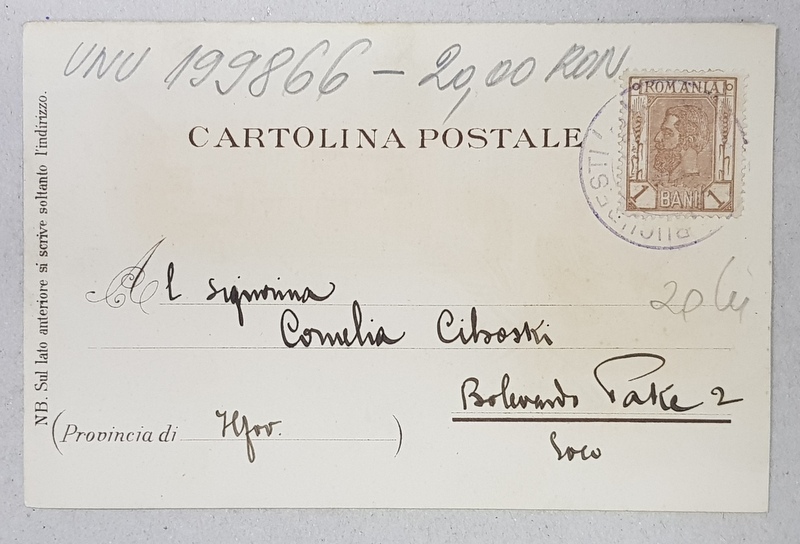 UNU 199866 – 20,00 RON
ROMANIA
1 BANI 1
BUCURESTI
CARTOLINA POSTALE
NB. Sul lato anteriore si scrive soltanto l'indirizzo.
Al signorina
Cornelia Ciboski
20 lei
Bolevardo Take 2
(Provincia di Ilfov. )
Loco